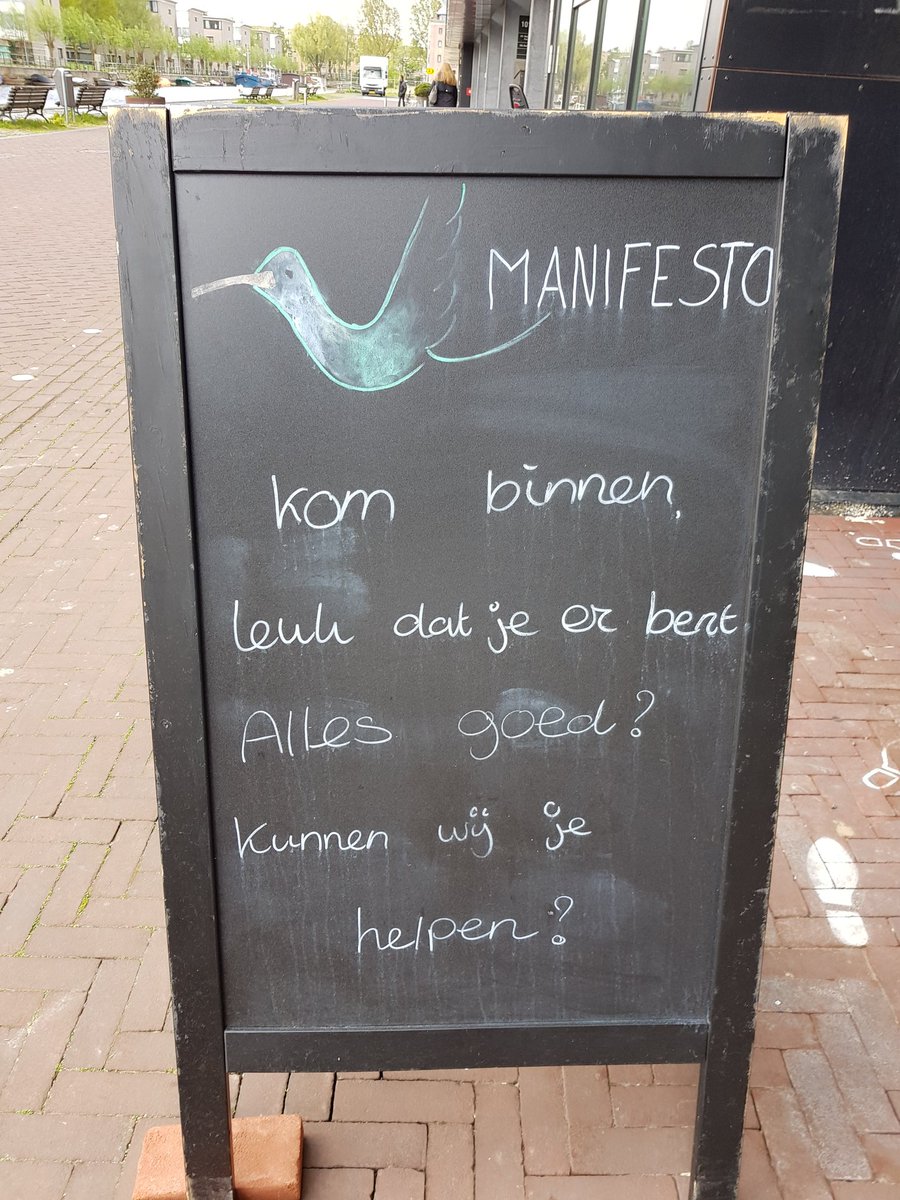 MANIFESTO
kom binnen,
leuk dat je er bent
Alles goed?
Kunnen wij je
helpen?